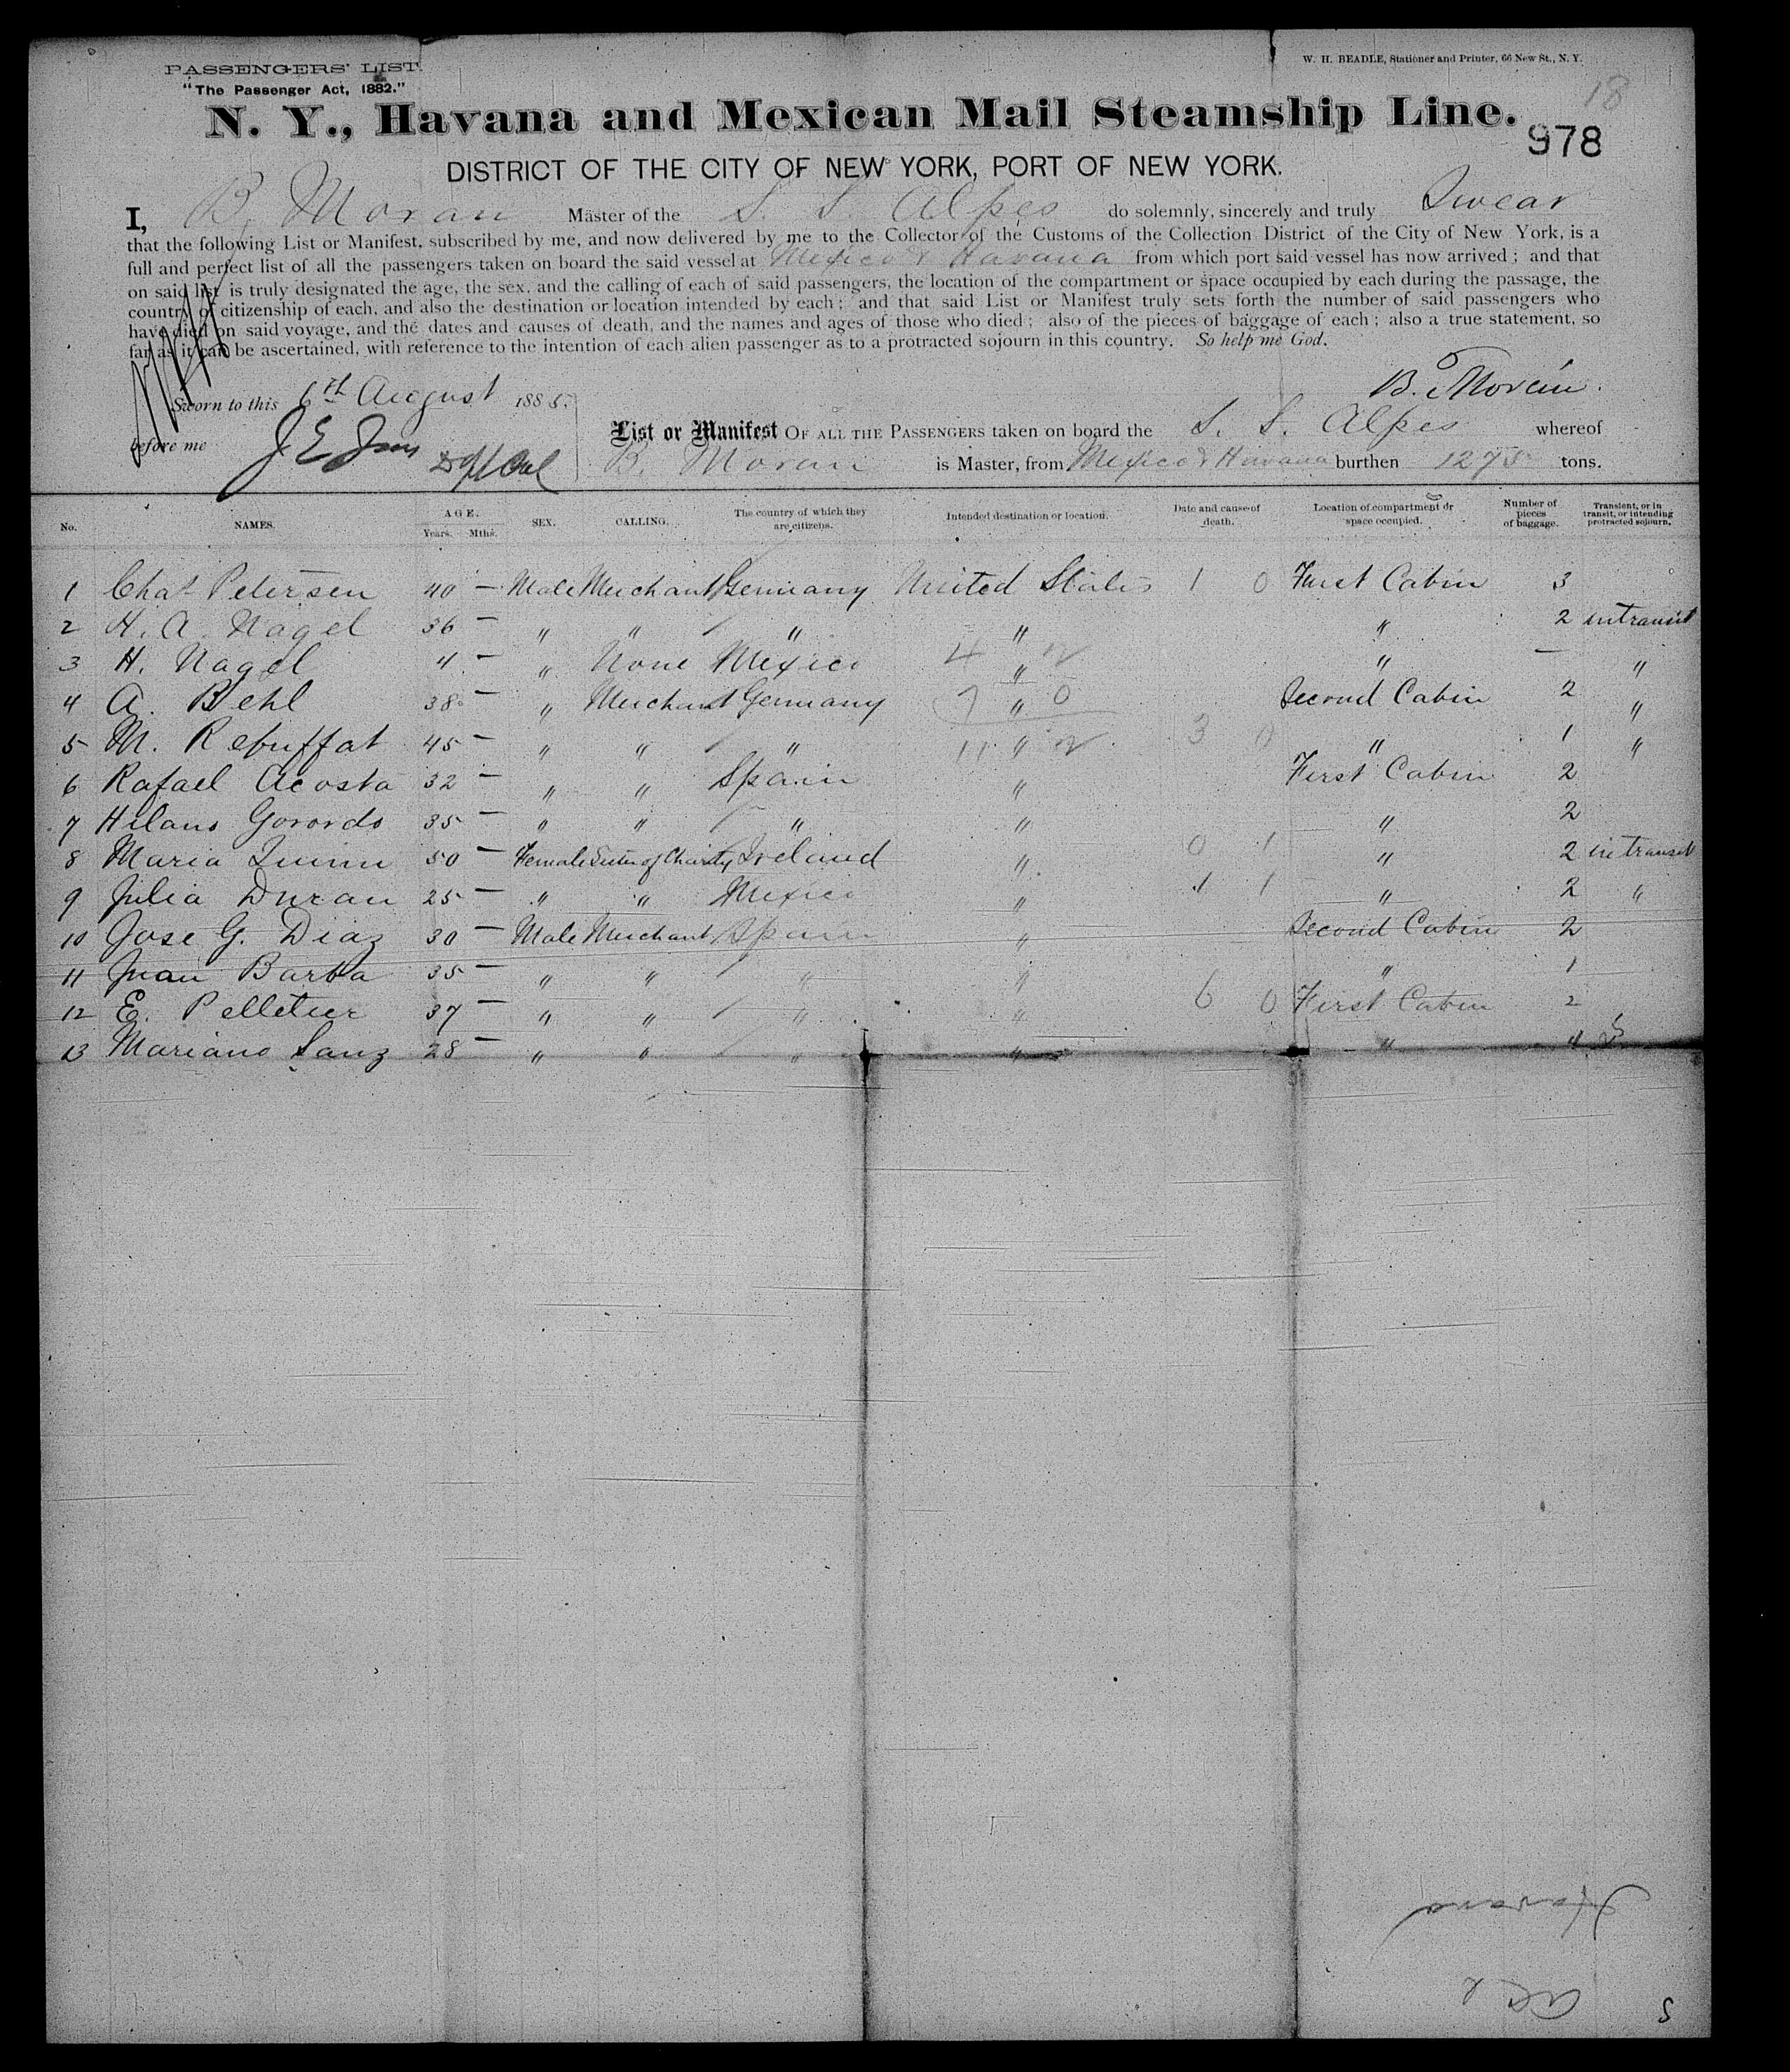 PASSENGERS' LIST.
"The Passenger Act, 1882."
W. H. BEADLE, Stationer and Printer, 66 New St., N. Y.
18
N. Y., Havana and Mexican Mail Steamship Line.
978
DISTRICT OF THE CITY OF NEW YORK, PORT OF NEW YORK.
I, B. Moran Master of the S. S. Alpes do solemnly, sincerely and truly Swear
that the following List or Manifest, subscribed by me, and now delivered by me to the Collector of the Customs of the Collection District of the City of New York, is a
full and perfect list of all the passengers taken on board the said vessel at Mexico & Havana from which port said vessel has now arrived; and that
on said list is truly designated the age, the sex, and the calling of each of said passengers, the location of the compartment or space occupied by each during the passage, the
country of citizenship of each, and also the destination or location intended by each; and that said List or Manifest truly sets forth the number of said passengers who
have died on said voyage, and the dates and causes of death, and the names and ages of those who died; also of the pieces of baggage of each; also a true statement, so
far as it can be ascertained, with reference to the intention of each alien passenger as to a protracted sojourn in this country. So help me God.
B. Moran.
Sworn to this 6th August 1885.
before me
List or Manifest OF ALL THE PASSENGERS taken on board the S. S. Alpes whereof
B. Moran is Master, from Mexico & Havana burthen 1275 tons.
No. NAMES. AGE. Years. Mths. SEX. CALLING. The country of which they are citizens. Intended destination or location. Date and cause of death. Location of compartment or space occupied. Number of pieces of baggage. Transient, or in transit, or intending protracted sojourn.
1 Chas Petersen 40 — Male Merchant Germany United States 1 0 First Cabin 3
2 H. A. Nagel 36 — " " " " " 2 in transit
3 H. Nagel 4 — " None Mexico " " — "
4 A. Behl 38 — " Merchant Germany " Second Cabin 2 "
5 M. Rebuffat 45 — " " " " 3 0 " 1 "
6 Rafael Acosta 32 — " " Spain " First Cabin 2
7 Hilano Gorordo 35 — " " " " " 2
8 Maria Quinn 50 — Female Sister of Charity Ireland " 0 1 " 2 in transit
9 Julia Duran 25 — " " Mexico " 1 1 " 2 "
10 Jose G. Diaz 30 — Male Merchant Spain " Second Cabin 2
11 Juan Barba 35 — " " " " " 1
12 E. Pelletier 37 — " " " " 6 0 First Cabin 2
13 Mariano Sanz 28 — " " " " " 4
Havana